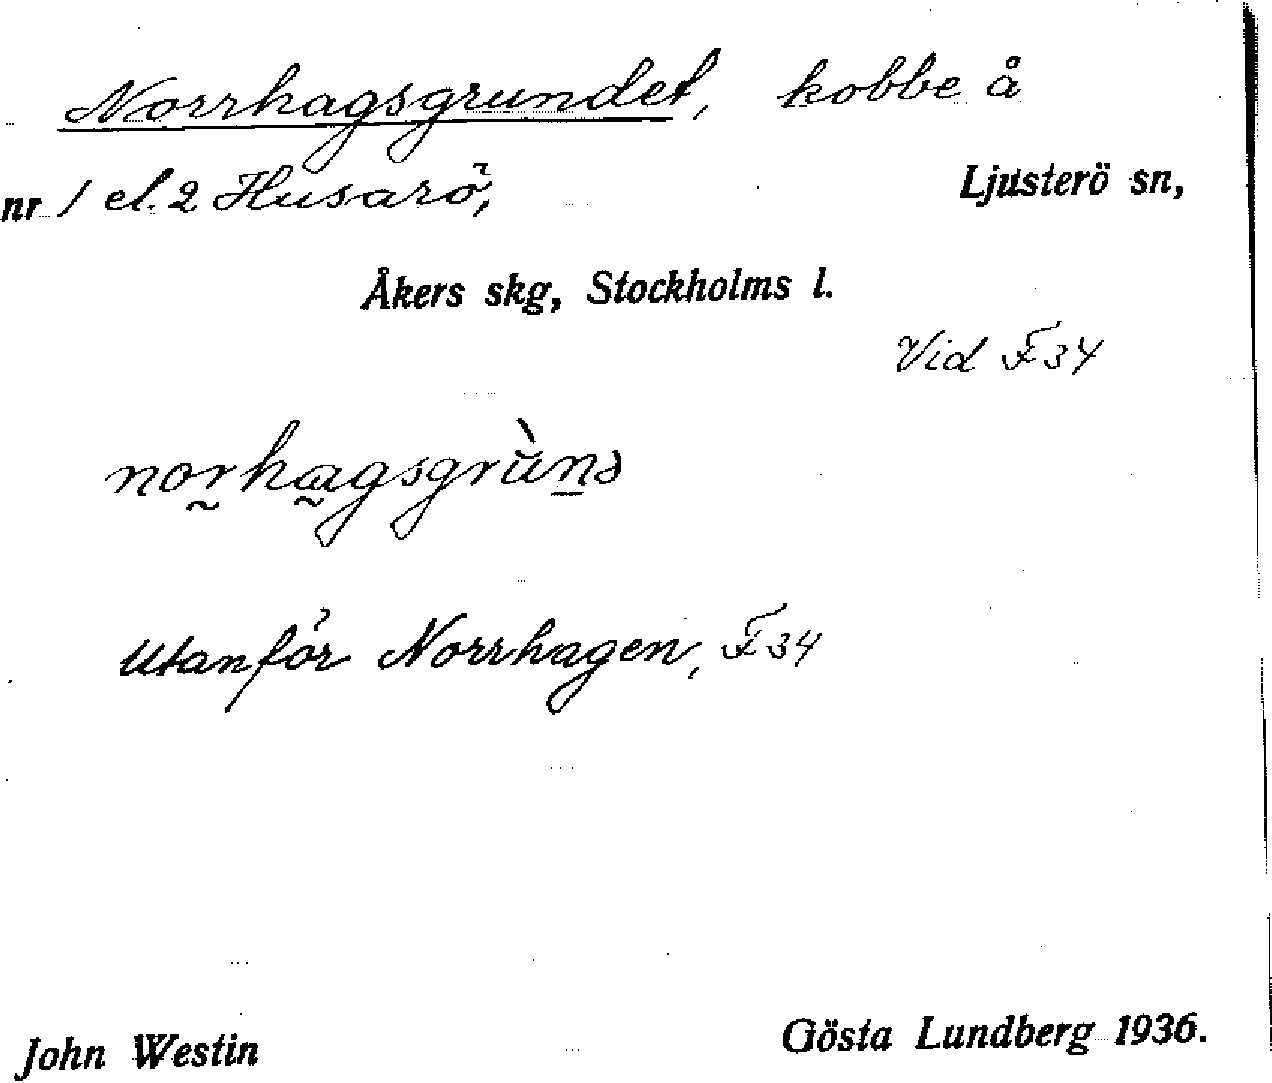 Norrhagsgrundet, kobbe å
nr 1 el. 2 Husarö, Ljusterö sn,
Åkers skg, Stockholms l.
Vid F 34
norhagsgrùnə
Utanför Norrhagen, F 34
John Westin Gösta Lundberg 1936.